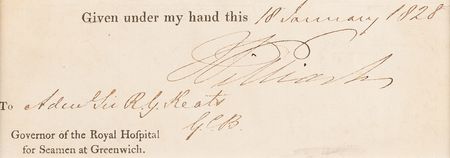 Given under my hand this 18 January 1828
William
To Adml Sir R. G. Keats
G.C.B.
Governor of the Royal Hoſpital
for Seamen at Greenwich.